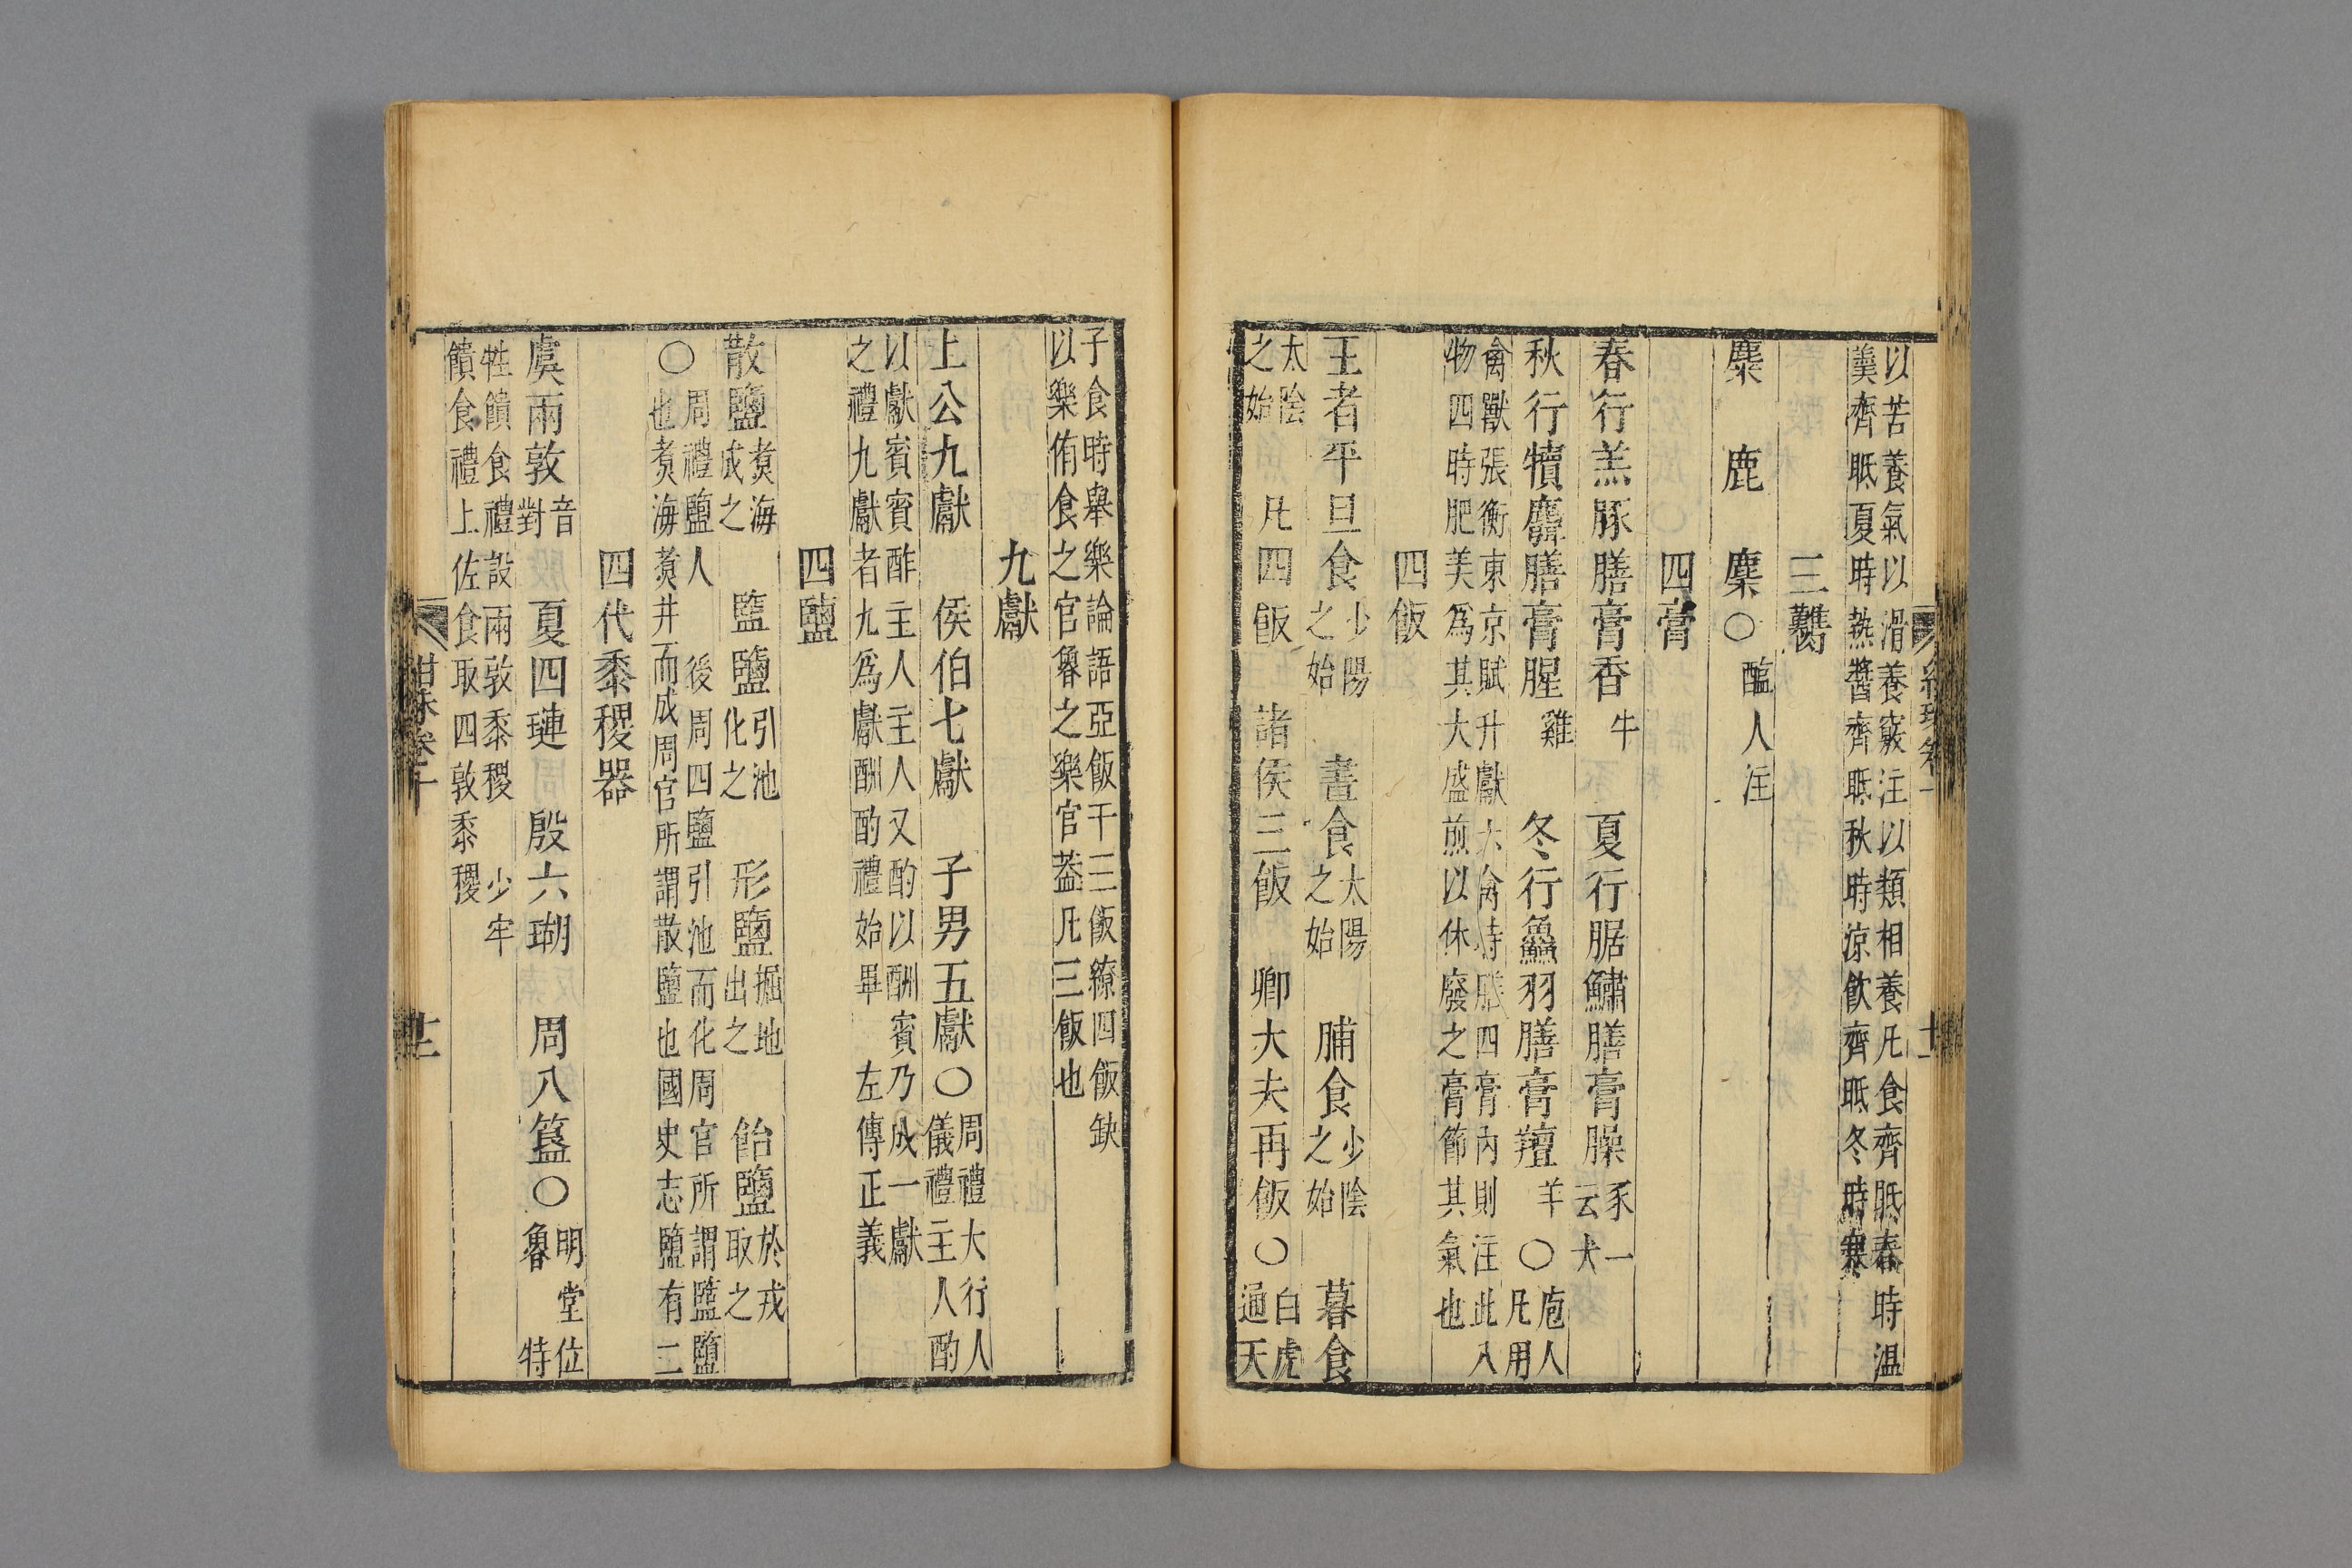 以苦養氣以滑養竅注以類相養凡食齊眡春時溫
羹齊眡夏時熱醬齊眡秋時涼飲齊眡冬時寒
三臡
麋 鹿 麇○醢人注
四膏
春行羔豚膳膏香牛 夏行腒鱐膳膏臊豕一云犬
秋行犢麛膳膏腥雞 冬行鱻羽膳膏羶羊○庖人凡用
禽獸張衡東京賦升獻六禽時膳四膏內則注此八
物四時肥美爲其大盛煎以休廢之膏節其氣也
四飯
王者平旦食少陽之始 晝食太陽之始 脯食少陰之始 暮食
太陰之始 凡四飯 諸侯三飯 卿大夫再飯○白虎通天
子食時舉樂論語亞飯干三飯繚四飯缺
以樂侑食之官魯之樂官葢凡三飯也
九獻
上公九獻 侯伯七獻 子男五獻○周禮大行人儀禮主人酌
以獻賓賓酢主人主人又酌以酬賓乃成一獻
之禮九獻者九爲獻酬酌禮始畢 左傳正義
四鹽
散鹽煑海成之 盬鹽引池化之 形鹽掘地出之 飴鹽於戎取之
○周禮鹽人 後周四鹽引池而化周官所謂盬鹽
也煑海煑井而成周官所謂散鹽也國史志鹽有二
四代黍稷器
虞兩敦音對 夏四璉 殷六瑚 周八簋○明堂位魯特
牲饋食禮設兩敦黍稷 少牢
饋食禮上佐食取四敦黍稷
甘珠卷十